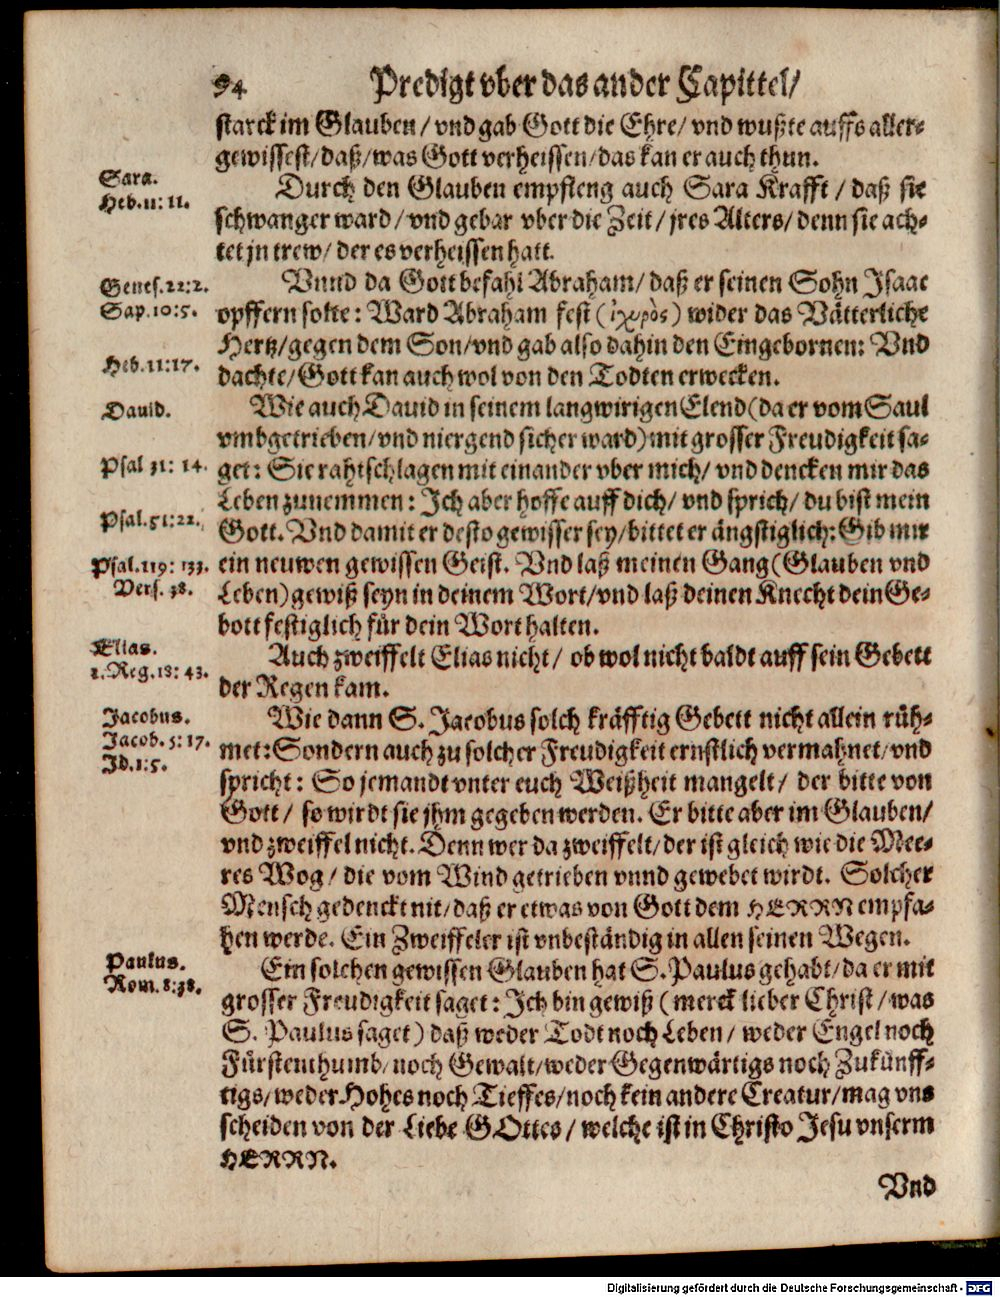 94 Predigt vber das ander Capittel/
starck im Glauben / vnd gab Gott die Ehre/ vnd wußte auffs aller-
gewissest/ daß/ was Gott verheissen/ das kan er auch thun.
Sara.
Heb. 11: 11.
Durch den Glauben empfieng auch Sara Krafft / daß sie
schwanger ward/ vnd gebar vber die Zeit/ jres Alters/ denn sie ach-
tet jn trew/ der es verheissen hatt.
Genes. 22:2.
Sap. 10:5.
Heb. 11:17.
Vnnd da Gott befahl Abraham/ daß er seinen Sohn Isaac
opffern solte: Ward Abraham fest (ἰχυρὸς) wider das Vätterliche
Hertz/ gegen dem Son/ vnd gab also dahin den Eingebornen: Vnd
dachte/ Gott kan auch wol von den Todten erwecken.
Dauid.
Psal 31: 14.
Psal. 51: 22.
Psal. 119: 133.
Vers. 38.
Wie auch Dauid in seinem langwirigen Elend (da er vom Saul
vmbgetrieben/ vnd niergend sicher ward) mit grosser Freudigkeit sa-
get: Sie rahtschlagen mit einander vber mich/ vnd dencken mir das
Leben zunemmen: Ich aber hoffe auff dich/ vnd sprich/ du bist mein
Gott. Vnd damit er desto gewisser sey/ bittet er ängstiglich: Gib mir
ein neuwen gewissen Geist. Vnd laß meinen Gang (Glauben vnd
Leben) gewiß seyn in deinem Wort/ vnd laß deinen Knecht dein Ge-
bott festiglich für dein Wort halten.
Elias.
1. Reg. 18: 43.
Auch zweiffelt Elias nicht/ ob wol nicht baldt auff sein Gebett
der Regen kam.
Jacobus.
Jacob. 5: 17.
Id. 1: 5.
Wie dann S. Jacobus solch kräfftig Gebett nicht allein rüh-
met: Sondern auch zu solcher Freudigkeit ernstlich vermahnet/ vnd
spricht: So jemandt vnter euch Weißheit mangelt/ der bitte von
Gott/ so wirdt sie jhm gegeben werden. Er bitte aber im Glauben/
vnd zweiffel nicht. Denn wer da zweiffelt/ der ist gleich wie die Mee-
res Wog / die vom Wind getrieben vnnd gewebet wirdt. Solcher
Mensch gedenckt nit/ daß er etwas von Gott dem HERRN empfa-
hen werde. Ein Zweiffeler ist vnbeständig in allen seinen Wegen.
Paulus.
Rom. 8:38.
Ein solchen gewissen Glauben hat S. Paulus gehabt/ da er mit
grosser Freudigkeit saget: Ich bin gewiß (merck lieber Christ / was
S. Paulus saget) daß weder Todt noch Leben/ weder Engel noch
Fürstenthumb/ noch Gewalt/ weder Gegenwärtigs noch Zukünff-
tigs/ weder Hohes noch Tieffes/ noch kein andere Creatur/ mag vns
scheiden von der Liebe GOttes / welche ist in Christo Jesu vnserm
HERRN.
Vnd
Digitalisierung gefördert durch die Deutsche Forschungsgemeinschaft - DFG